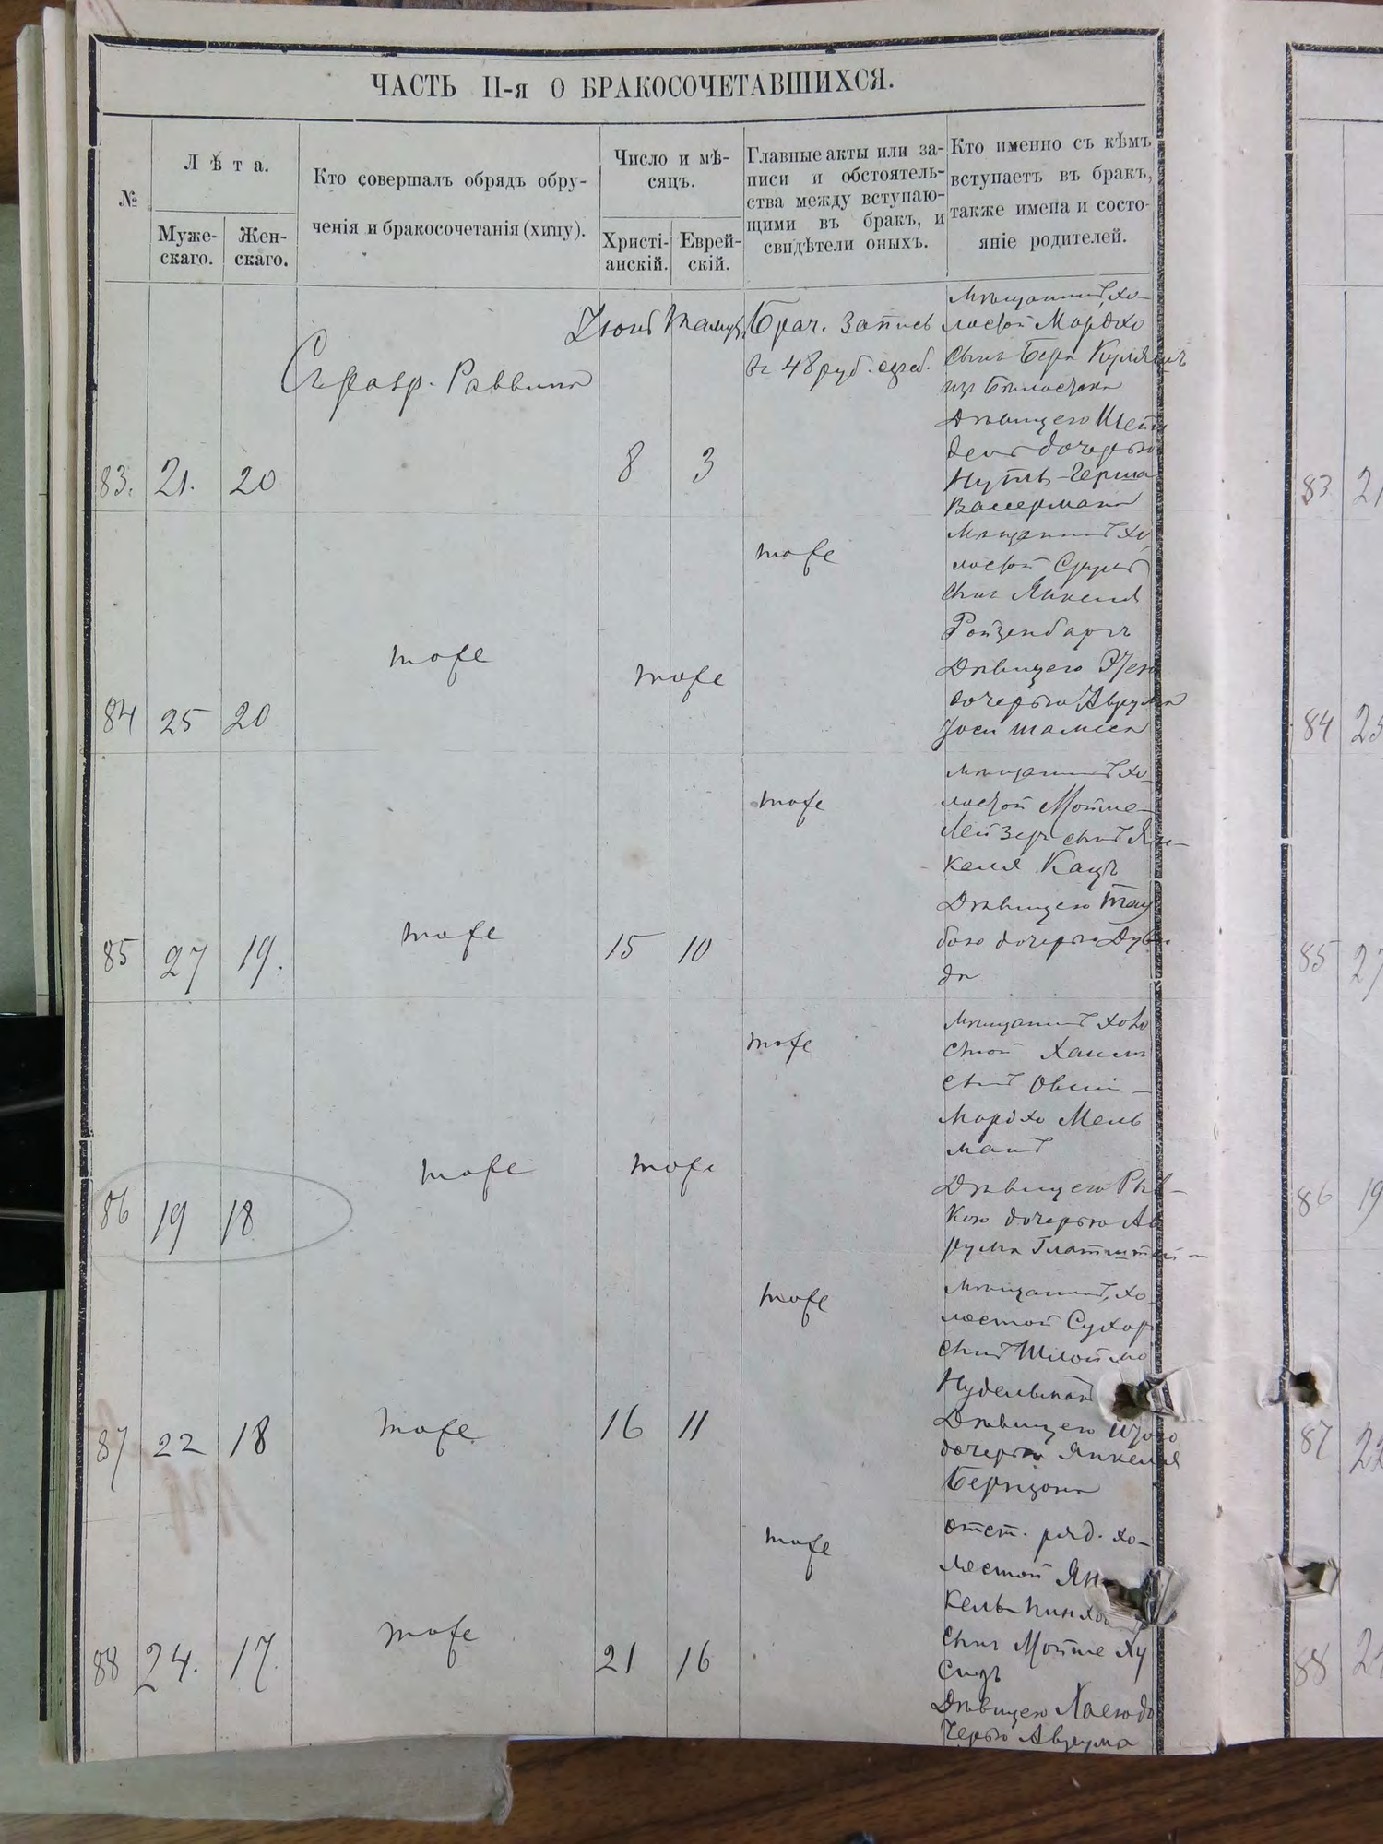 ЧАСТЬ II-я О БРАКОСОЧЕТАВШИХСЯ.
№
Лѣта.
Муже-
скаго.
Жен-
скаго.
Кто совершалъ обрядъ обру-
ченія и бракосочетанія (хипу).
Число и мѣ-
сяцъ.
Христі-
анскій.
Еврей-
скій.
Главные акты или за-
писи и обстоятель-
ства между вступаю-
щими въ бракъ, и
свидѣтели оныхъ.
Кто именно съ кѣмъ
вступаетъ въ бракъ,
также имена и состо-
яніе родителей.
83. 21. 20
Съ разр. Раввина
8 3
Брач. Запись
въ 48 руб. сереб.
Мѣщанинъ, хо-
лостой Мордко
сынъ Бера
изъ Бѣлостока
Дѣвицею
дочерью
Нутѣ-Герша
Вассермана
84 25 20
тоже
тоже
тоже
Мѣщанинъ хо
лостой Сруль
сынъ Янкеля
Ройзенбаргъ
Дѣвицею
дочерью Аврума
85 27 19.
тоже
15 10
тоже
Мѣщанинъ хо-
лостой Мотте-
Лейзеръ сынъ Ян-
келя Кацъ
Дѣвицею Тау
бою дочерью Дуви
да
86 19 18
тоже
тоже
тоже
Мѣщанинъ холо
стой Хаимъ
сынъ Овшій-
Мордко Мель
манъ
Дѣвицею Рив-
кою дочерью Ав
рума
87 22 18
тоже
16 11
тоже
Мѣщанинъ, хо-
лостой Сухоръ
сынъ Шлоймо
Нудельманъ
Дѣвицею
дочерью Янкеля
88 24. 17.
тоже
21 16
тоже
отст. ряд. хо-
лостой Ян
кель
сынъ Мотте Ху
сидъ
Дѣвицею Хаею до
черью Аврума
83 21
84 25
85 27
86 19
87 22
88